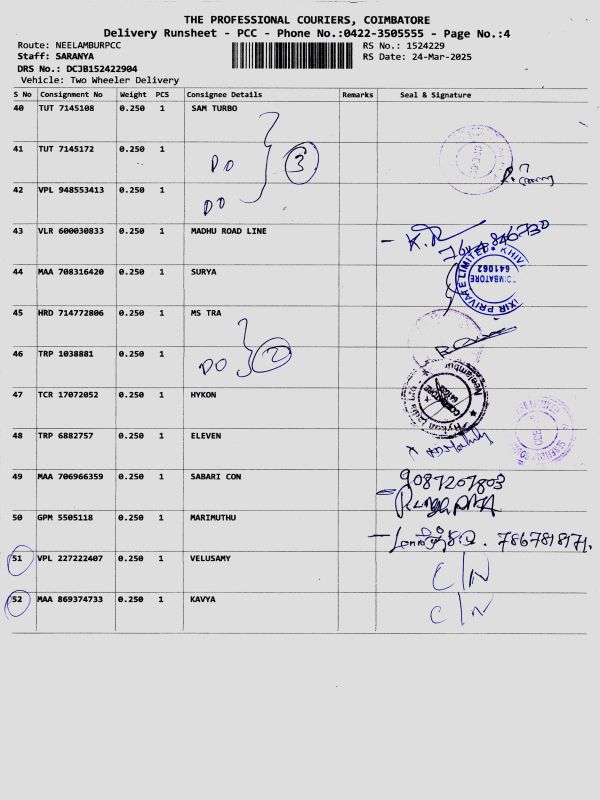 THE PROFESSIONAL COURIERS, COIMBATORE
Delivery Runsheet - PCC - Phone No.:0422-3505555 - Page No.:4
Route: NEELAMBURPCC
RS No.: 1524229
Staff: SARANYA
RS Date: 24-Mar-2025
DRS No.: DCJB152422904
Vehicle: Two Wheeler Delivery
S No Consignment No Weight PCS Consignee Details Remarks Seal & Signature
40 TUT 7145108 0.250 1 SAM TURBO
41 TUT 7145172 0.250 1 DO 3
42 VPL 948553413 0.250 1 DO
43 VLR 600030833 0.250 1 MADHU ROAD LINE
44 MAA 708316420 0.250 1 SURYA
641062
45 HRD 714772806 0.250 1 MS TRA
46 TRP 1038881 0.250 1 DO 2
47 TCR 17072052 0.250 1 HYKON
Hykon India
Neelambur
48 TRP 6882757 0.250 1 ELEVEN
49 MAA 706966359 0.250 1 SABARI CON 9087207803
50 GPM 5505118 0.250 1 MARIMUTHU 7867818171
51 VPL 227222407 0.250 1 VELUSAMY C/N
52 MAA 869374733 0.250 1 KAVYA C/N